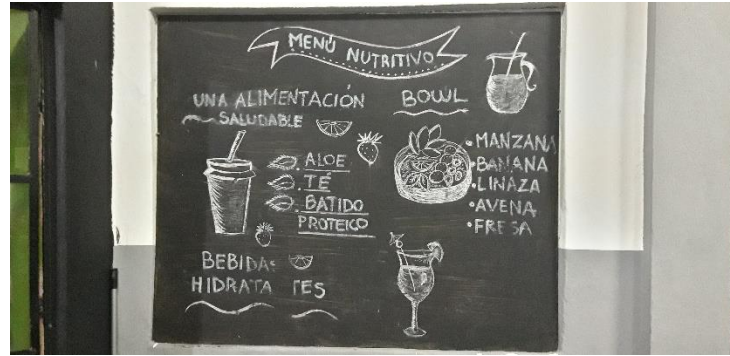 MENÚ NUTRITIVO
UNA ALIMENTACIÓN
SALUDABLE
• ALOE
• TÉ
• BATIDO
PROTEICO
BEBIDAS
HIDRATA TES
BOWL
• MANZANA
• BANANA
• LINAZA
• AVENA
• FRESA